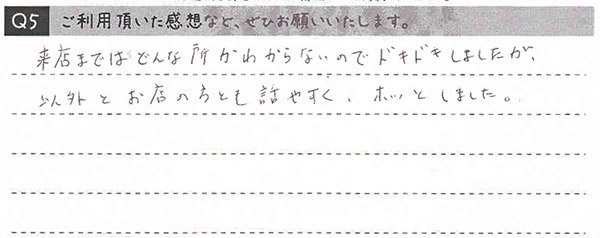 Q5 ご利用頂いた感想など、ぜひお願いいたします。
来店まではどんな所かわからないのでドキドキしましたが、
以外とお店の方とも話やすく、ホッとしました。